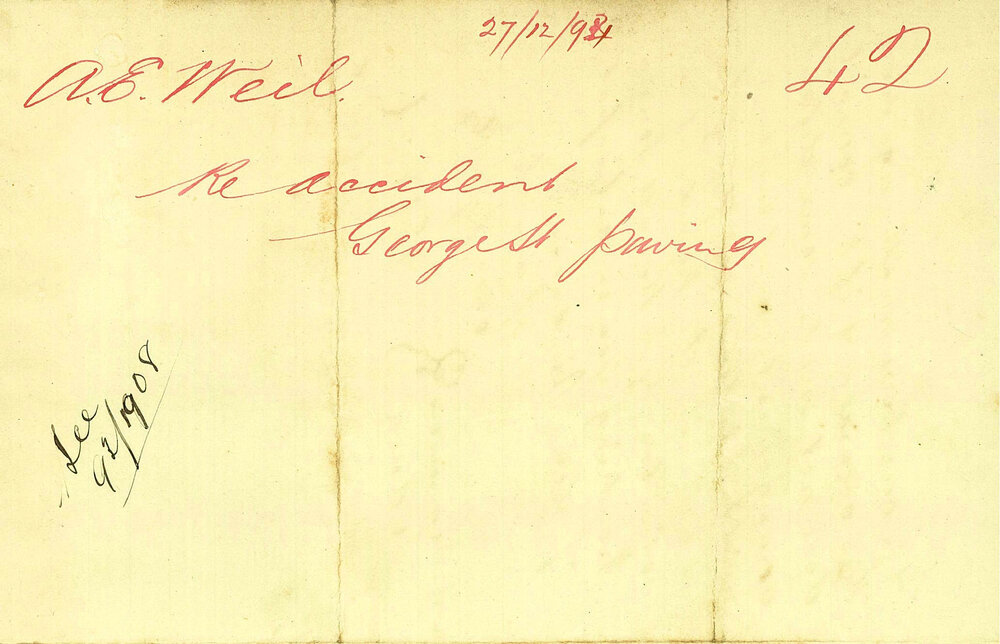 27/12/94
A.E. Weil.
42
Re accident
George St paving
See
92/1908